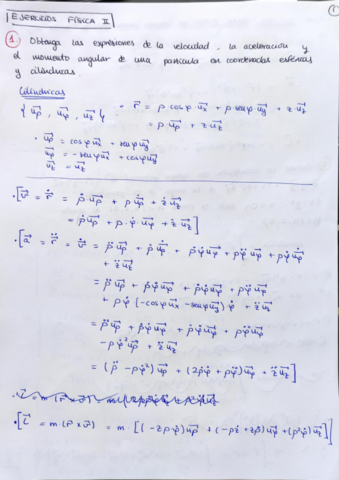 ①
EJERCICIOS FÍSICA II
① Obtenga las expresiones de la velocidad, la aceleración y
el momento angular de una partícula en coordenadas esféricas
y cilíndricas.
Cilíndricas
{ u⃗ρ, u⃗φ, u⃗z } · r⃗ = ρ cosφ u⃗x + ρ senφ u⃗y + z u⃗z
= ρ u⃗ρ + z u⃗z
· u⃗ρ = cosφ u⃗x + senφ u⃗y
u⃗φ = -senφ u⃗x + cosφ u⃗y
u⃗z = u⃗z
· [v⃗ = ṙ⃗ = ρ̇ u⃗ρ + ρ u̇⃗ρ + ż u⃗z
= ρ̇ u⃗ρ + ρ·φ̇ u⃗φ + ż u⃗z]
· [a⃗ = r̈⃗ = v̇⃗ = ρ̈ u⃗ρ + ρ̇ u̇⃗ρ + ρ̇φ̇ u⃗φ + ρφ̈ u⃗φ + ρφ̇ u̇⃗φ
+ z̈ u⃗z
= ρ̈ u⃗ρ + ρ̇φ̇ u⃗φ + ρ̇φ̇ u⃗φ + ρφ̈ u⃗φ
+ ρφ̇ (-cosφ u⃗x - senφ u⃗y) φ̇ + z̈ u⃗z
= ρ̈ u⃗ρ + ρ̇φ̇ u⃗φ + ρ̇φ̇ u⃗φ + ρφ̈ u⃗φ
- ρφ̇² u⃗ρ + z̈ u⃗z
= (ρ̈ - ρφ̇²) u⃗ρ + (2ρ̇φ̇ + ρφ̈) u⃗φ + z̈ u⃗z]
· [L⃗ = m·(r⃗ × v⃗) = m·[(-zρ·φ̇) u⃗ρ + (-ρż + zρ̇) u⃗φ + (ρ²φ̇) u⃗z]